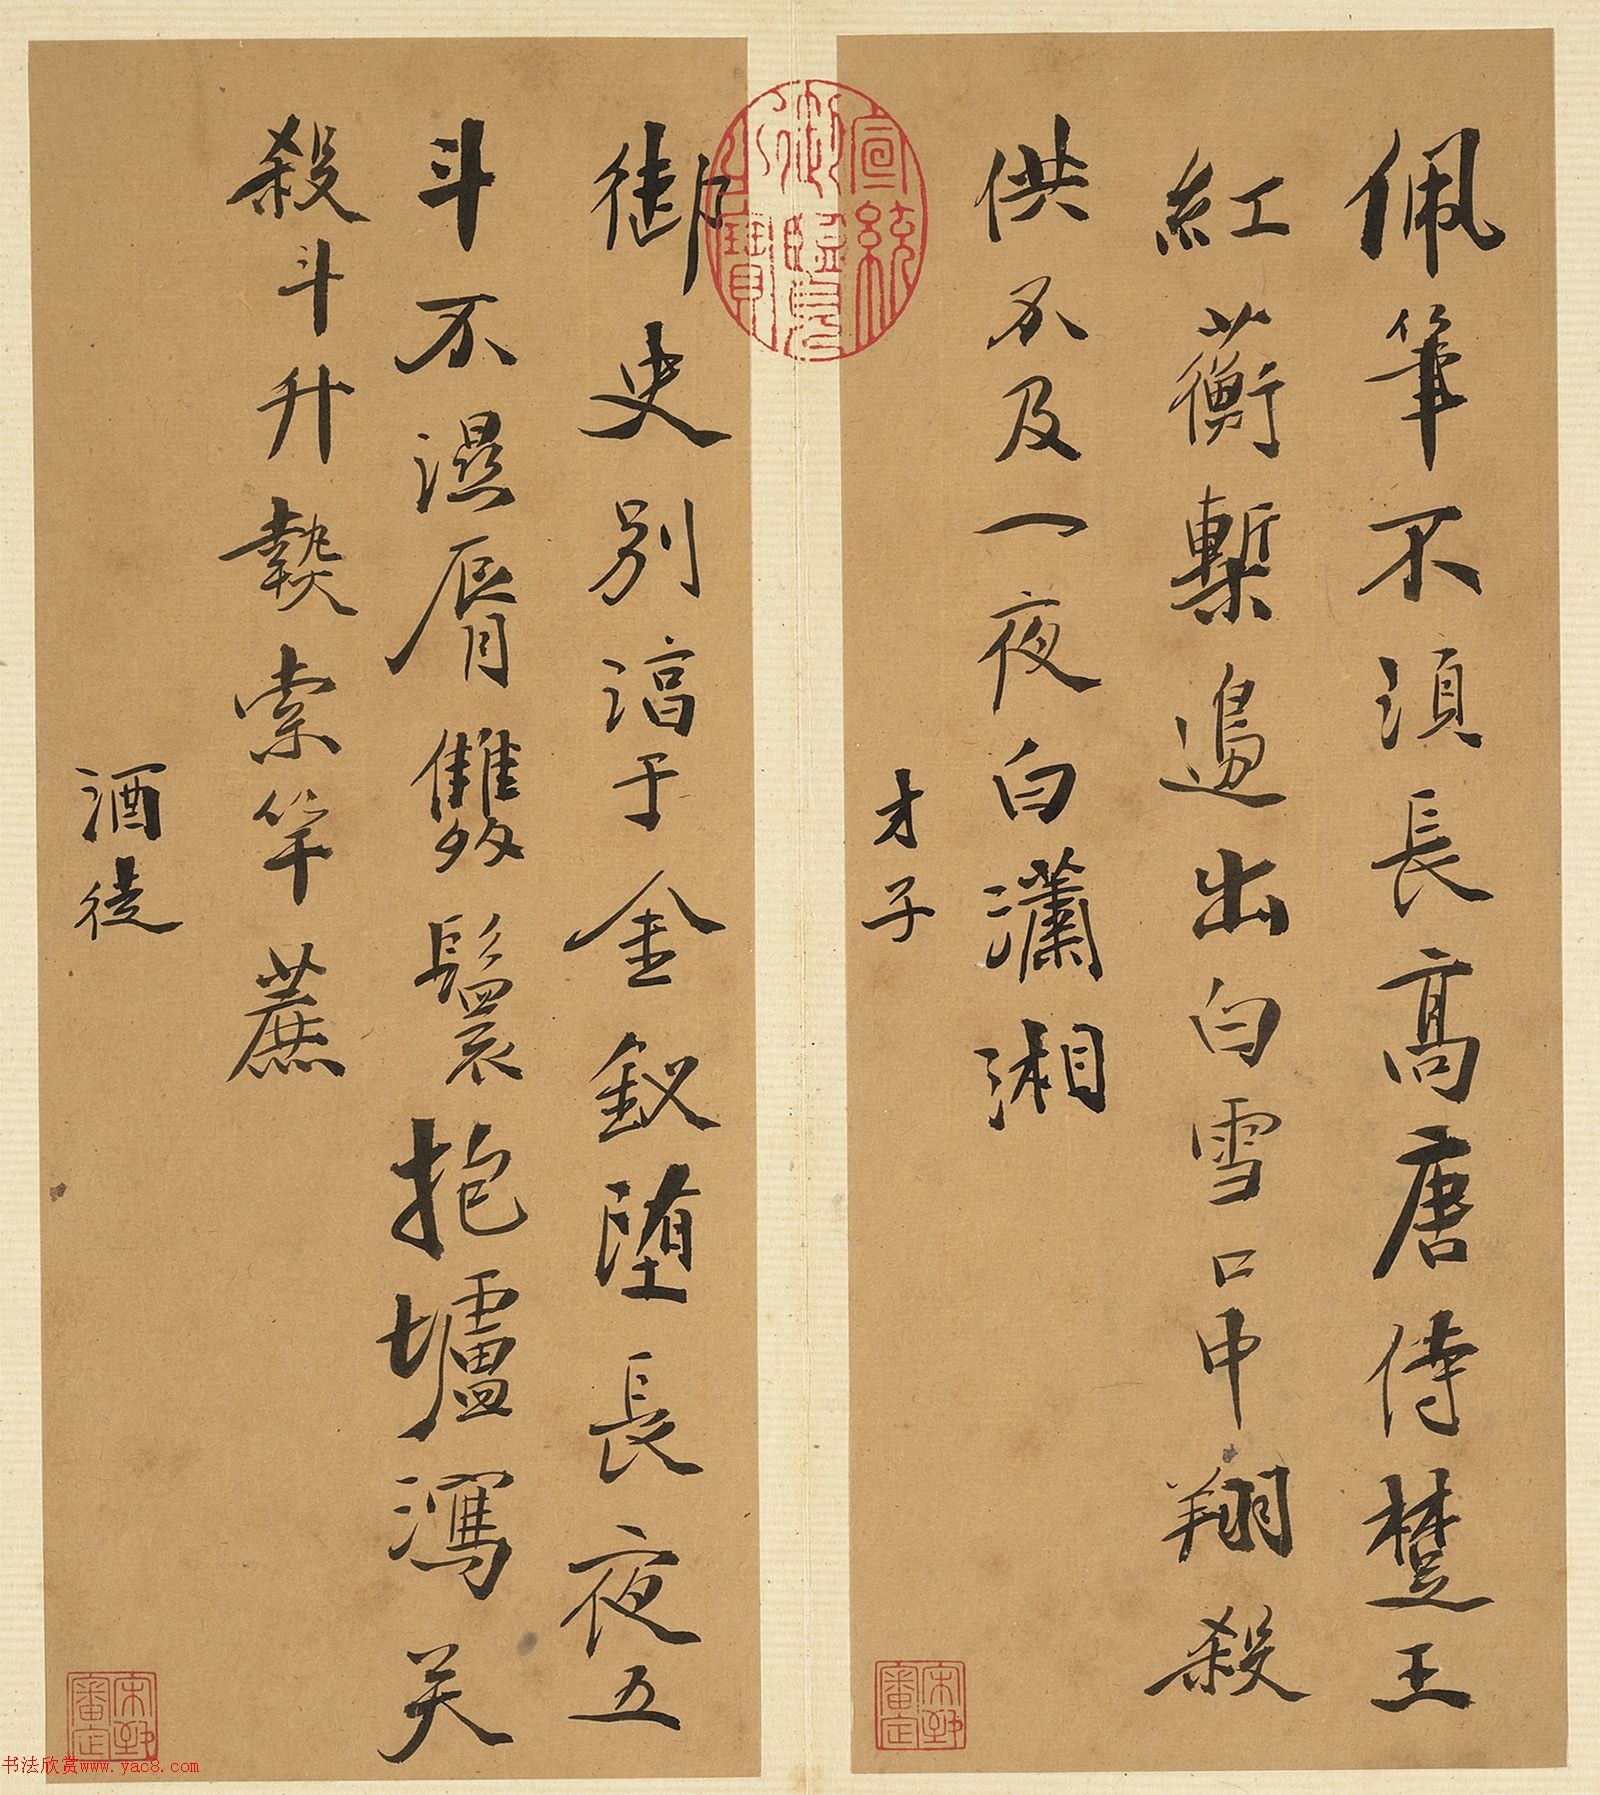 佩筆不須長高唐侍楚王
紅蘅槧邊出白雪口中翔殺
供不及一夜白瀟湘
才子
御史別淳于金釵堕長夜五
斗不濕脣雙鬟抱壚瀉笑
殺斗升
索竿蔗
酒徒
宣統御覽之寶
書法欣賞www.yac8.com